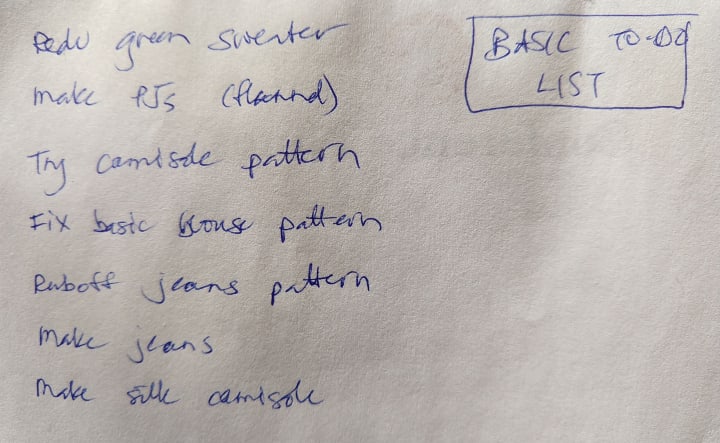 BASIC TO-DO
LIST
Redo green sweater
Make PJs (flannel)
Try camisole pattern
Fix basic blouse pattern
Ruboff jeans pattern
Make jeans
Make silk camisole